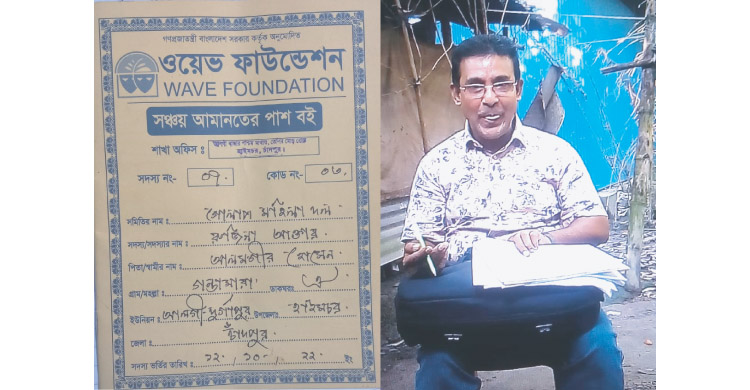 গণপ্রজাতন্ত্রী বাংলাদেশ সরকার কর্তৃক অনুমোদিত
ওয়েভ ফাউন্ডেশন
WAVE FOUNDATION
সঞ্চয় আমানতের পাশ বই
শাখা অফিস :
হাইমচর, চাঁদপুর।
সদস্য নং- ০৭. কোড নং- ০৬.
সমিতির নাম : মহিলা দল
সদস্য/সদস্যার নাম : আক্তার
পিতা/স্বামীর নাম : আলমগীর হোসেন
গ্রাম/মহল্লা : গন্ডামারা ডাকঘরঃ ঐ
ইউনিয়ন : আলগী-দুর্গাপুর উপজেলাঃ হাইমচর
জেলা : চাঁদপুর
সদস্য ভর্তির তারিখ : ১২. ১০. ২২ ইং